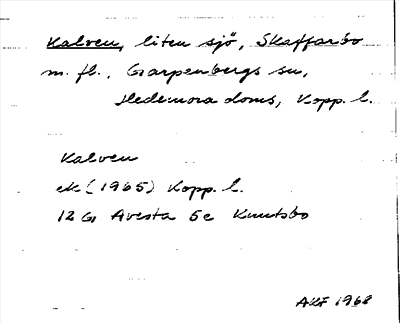 Kalven, liten sjö, Skaffarbo
m. fl., Garpenbergs sn,
Hedemora doms, Kopp. l.
Kalven
ek (1965) Kopp. l.
12 G Avesta 5e Knutsbo
AKF 1968